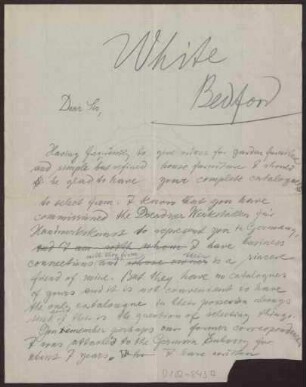 White
Bedford
Dear Sir,
Having frequently to give orders for garden furniture
and simple but refined house furniture I should
be glad to have your complete catalogue
to select from. I know that you have
commissioned the Dresdner Werkstätten für
Handwerkskunst to represent you in Germany,
and I am with whom I have business
connections with this firm and whose is a sincere
friend of mine. But they have no catalogues
of yours and it is not convenient to have
the only catalogue in their possession always
sent if there is the question of selecting things.
You remember perhaps our former correspondence
I was attached to the German Embassy for
about 7 years. I have written